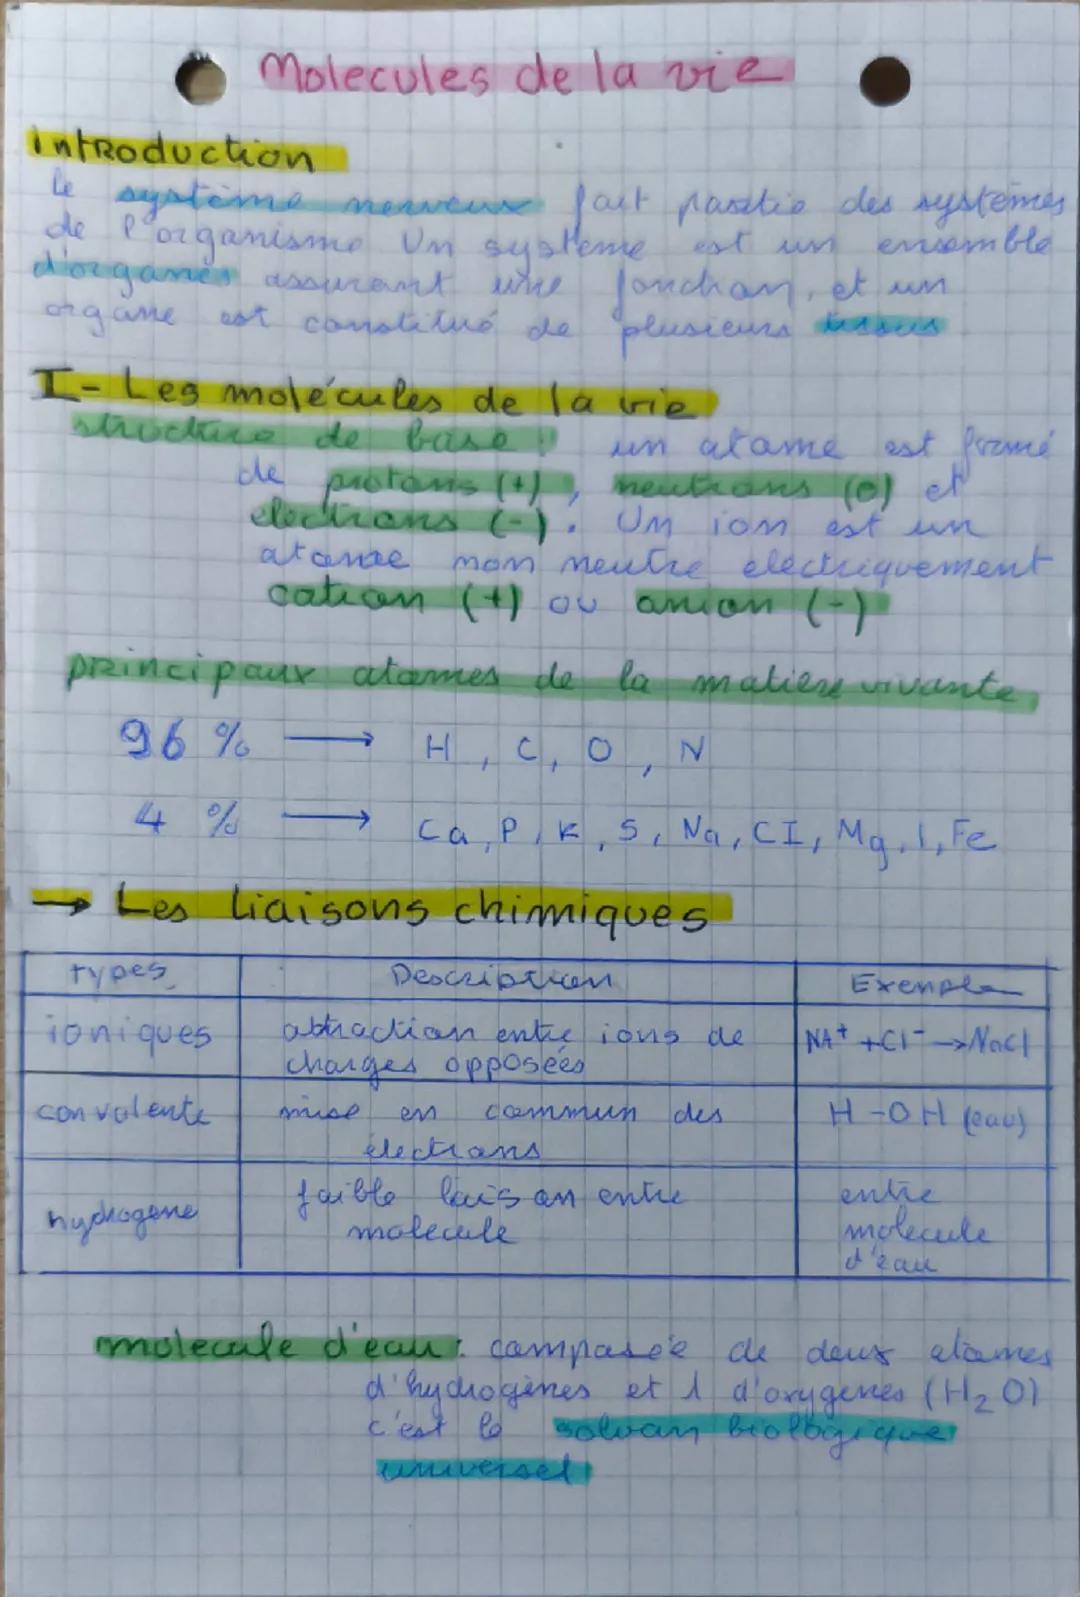 Molecules de la vie
introduction
Le système nerveux fait partie des systèmes
de l'organisme Un système est un ensemble
d'organes assurant une fonction, et un
organe est constitué de plusieurs tissus
I- Les molécules de la vie
structure de base : un atome est formé
de protons (+), neutrons (0) et
electrons (-). Un ion est un
atome non neutre electriquement
cation (+) ou anion (-)
principaux atomes de la matiere vivante,
96 % → H, C, O, N
4 % → Ca, P, K, S, Na, CI, Mg, I, Fe
→ Les liaisons chimiques
types Description Exemple
ioniques attraction entre ions de charges opposées NA⁺ + Cl⁻ → NaCl
convalente mise en commun des électrons H-OH (eau)
hydrogene faible liaison entre molecule entre molecule d'eau
molecule d'eau: composée de deux atomes
d'hydrogènes et 1 d'oxygenes (H₂O)
c'est le solvan biologique
universel